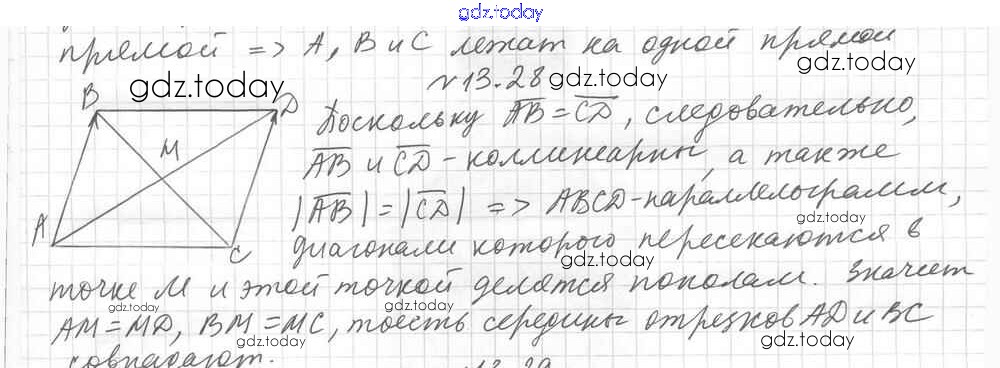 gdz.today
прямой => A, B и C лежат на одной прямой
№13.28 gdz.today
gdz.today
B D Поскольку AB = CD, следовательно,
M AB и CD - коллинеарны, а также
gdz.today
|AB| = |CD| => ABCD - параллелограмм,
gdz.today
A C диагонали которого пересекаются в
gdz.today
точке M и этой точкой делятся пополам. Значит
gdz.today gdz.today
AM = MD, BM = MC, тоесть середины отрезков AD и BC
gdz.today gdz.today
совпадают.
13.29